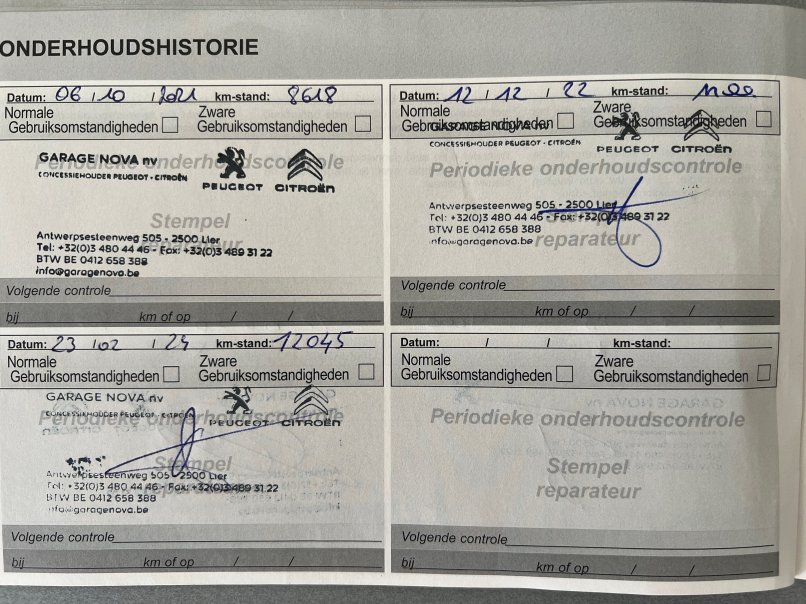 ONDERHOUDSHISTORIE
Datum: 06 / 10 / 2021 km-stand: 8618
Normale
Gebruiksomstandigheden
Zware
Gebruiksomstandigheden
Periodieke onderhoudscontrole
GARAGE NOVA nv
CONCESSIEHOUDER PEUGEOT - CITROËN
PEUGEOT CITROËN
Stempel
Antwerpsesteenweg 505 - 2500 Lier
Tel: +32(0)3 480 44 46 - Fax: +32(0)3 489 31 22
BTW BE 0412 658 388
info@garagenova.be
Volgende controle
bij km of op / /
Datum: 12 / 12 / 22 km-stand:
Normale
Gebruiksomstandigheden
Zware
Gebruiksomstandigheden
CONCESSIEHOUDER PEUGEOT - CITROËN
PEUGEOT CITROËN
Periodieke onderhoudscontrole
Antwerpsesteenweg 505 - 2500 Lier
Tel: +32(0)3 480 44 46 - Fax: +32(0)3 489 31 22
BTW BE 0412 658 388
info@garagenova.be
reparateur
Volgende controle
bij km of op / /
Datum: 23 / 02 / 24 km-stand: 12045
Normale
Gebruiksomstandigheden
Zware
Gebruiksomstandigheden
GARAGE NOVA nv
CONCESSIEHOUDER PEUGEOT - CITROËN
PEUGEOT CITROËN
Periodieke onderhoudscontrole
Stempel
Antwerpsesteenweg 505 - 2500 Lier
Tel: +32(0)3 480 44 46 - Fax: +32(0)3 489 31 22
BTW BE 0412 658 388
info@garagenova.be
Volgende controle
bij km of op / /
Datum: / / km-stand:
Normale
Gebruiksomstandigheden
Zware
Gebruiksomstandigheden
GARAGE NOVA nv
Periodieke onderhoudscontrole
Stempel
reparateur
Volgende controle
bij km of op / /